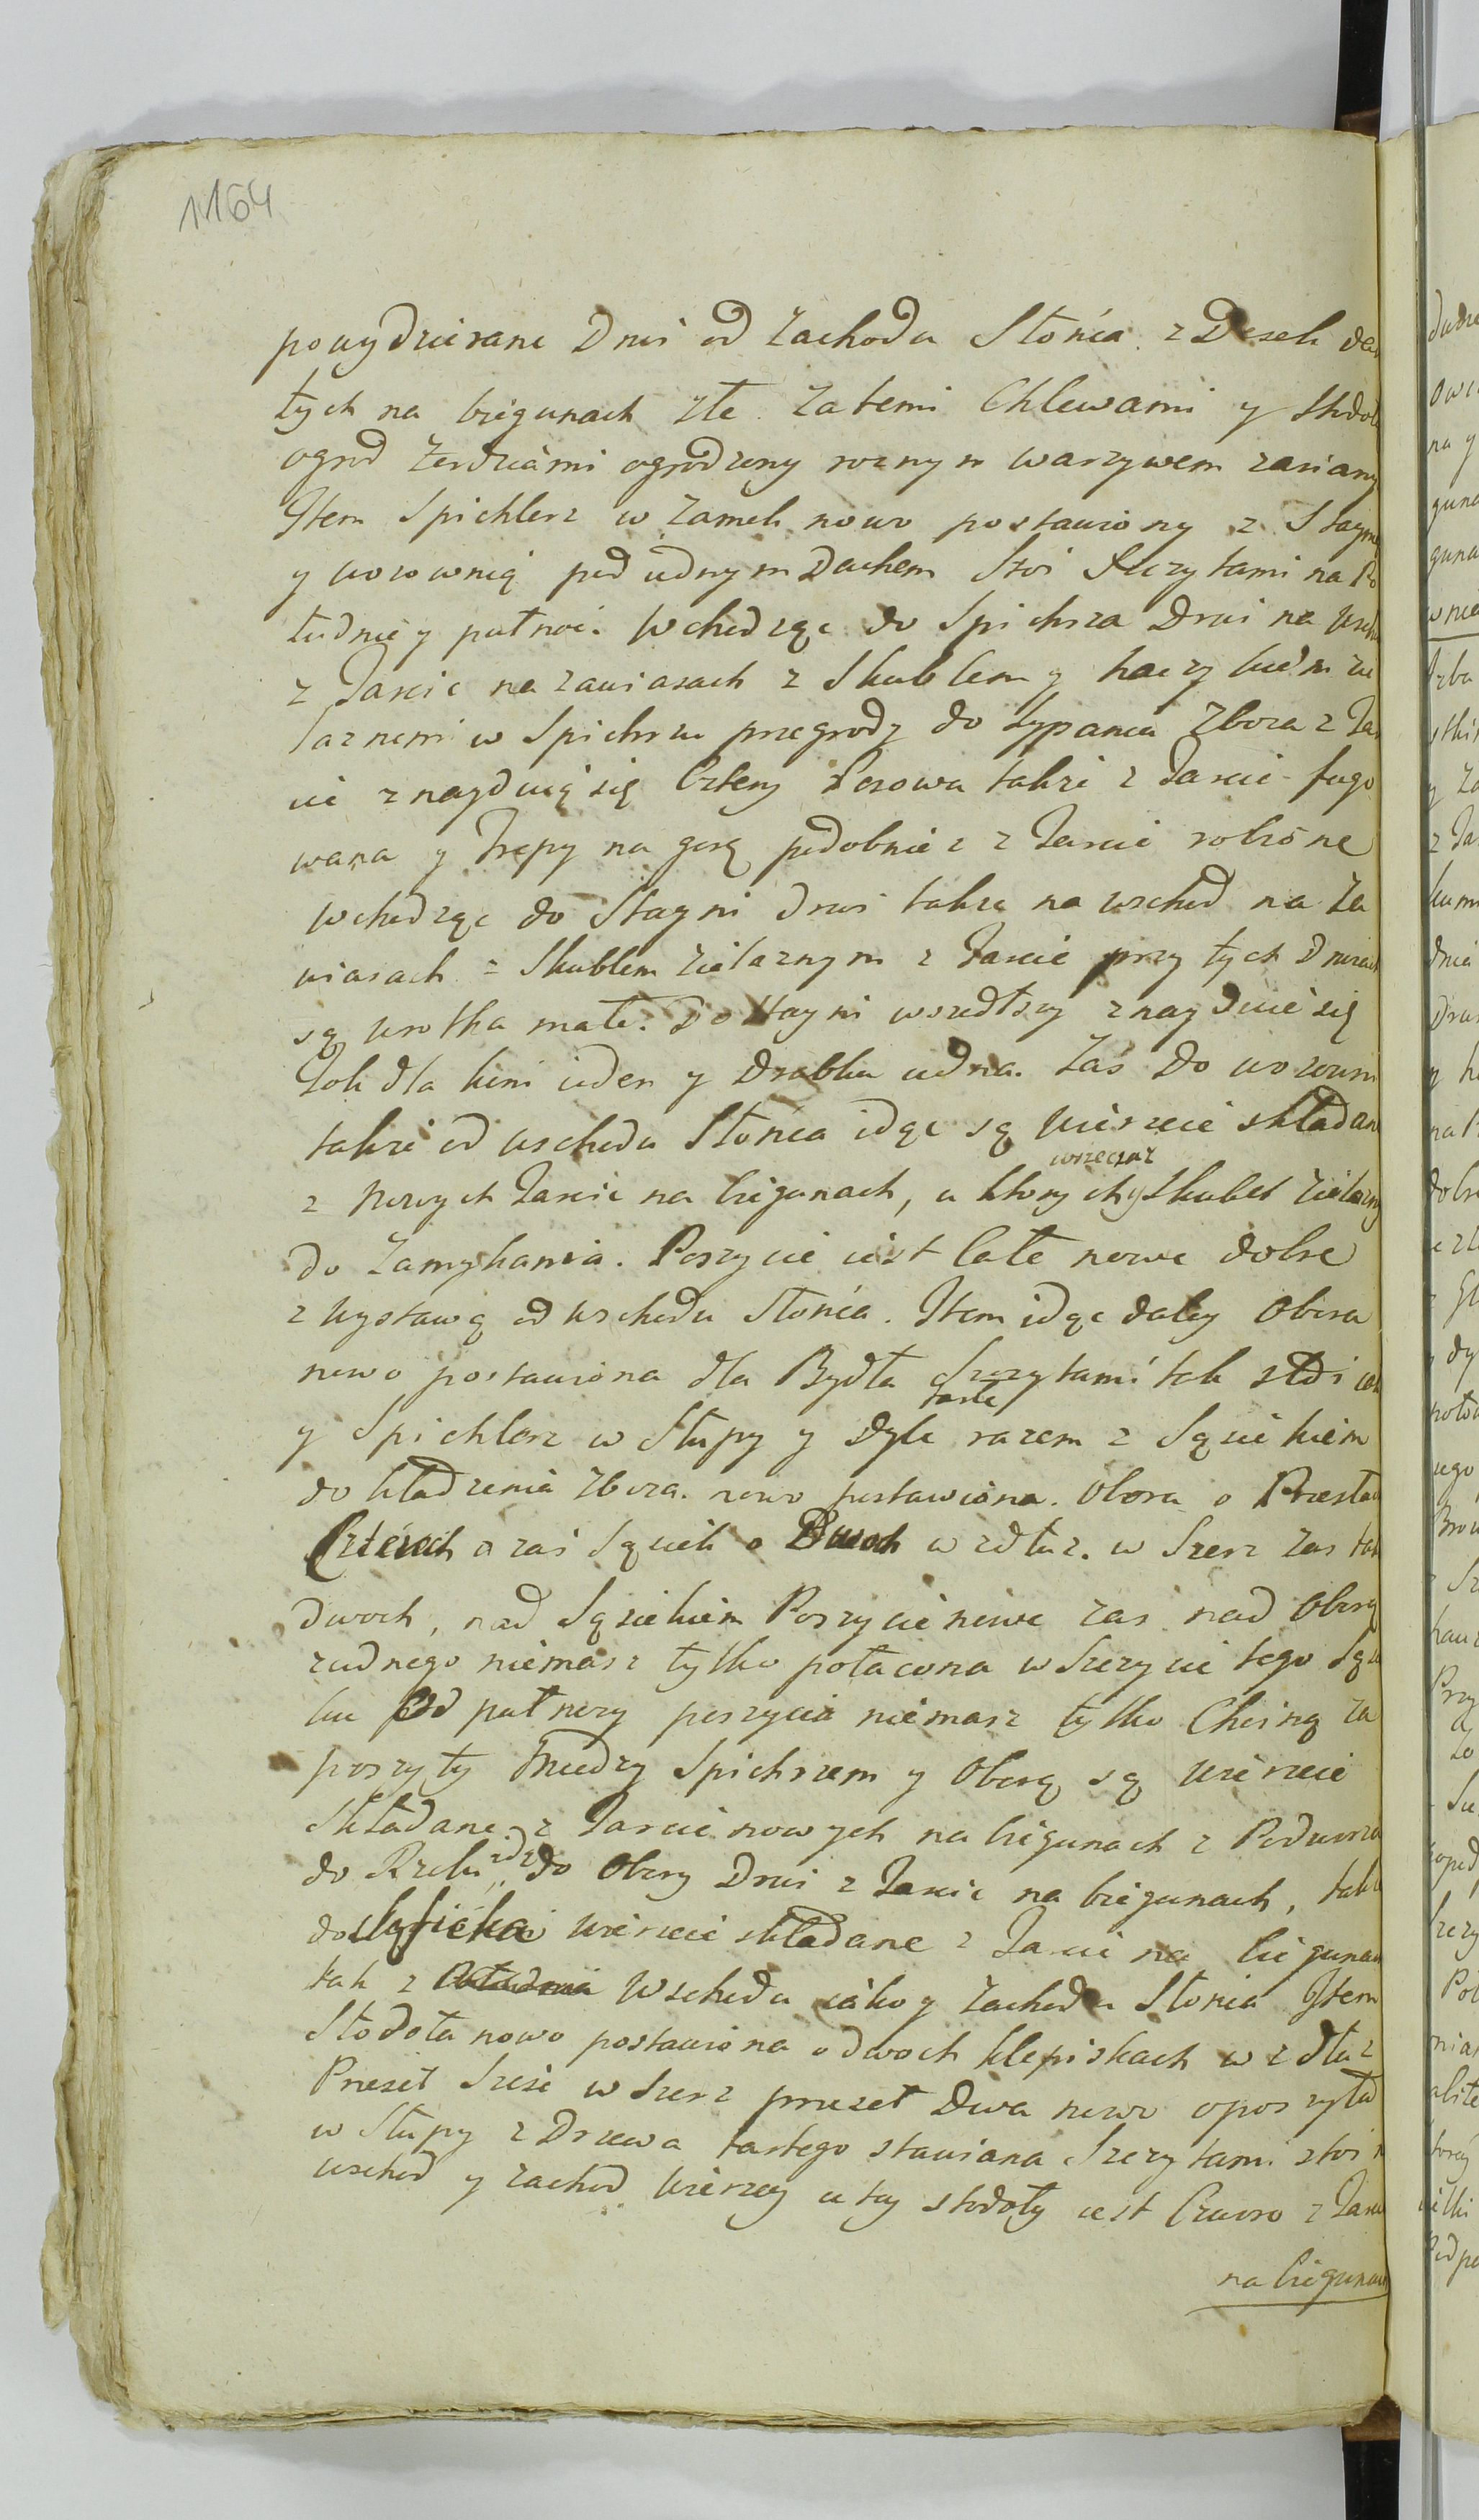 1164
powydzierane Drwi od Zachodu Słońca z Desek dar
tych na biegunach złe. Za temi Chlewami y Stodołą
ogrod Zerdziami ogrodzony roznym warzywem zasiany
Item Spichlerz w Zamek nowo postawiony z Staynią
y wozownią pod iednym Dachem Stoi Szczytami na Po
łudnie y pułnoc. Wchodząc do Spichrza Drwi na Wschod
z Tarcic na zawiasach z Skoblem y haczykiem że
laznemi w Spichrzu przegrody do sypania Zboza z Tar
cic znayduią się Cztery Posowa takze z Tarcic fugo
wana y Trepy na gorę podobniez z Tarcic robione
Wchodząc do Stayni drwi takze na wschod na Za
wiasach z Skoblem Zielaznym z Tarcic przy tych Drwiach
są wrotka małe. Do Stayni wszedłszy znayduie się
Złob dla koni ieden y Drabka iedna. Zas do wozowni
takze od wschodu Słońca idąc są Wierzeie składane
z Nowych Tarcic na biegunach, u ktorych y wrzeciąz Skobel Zielazny
do Zamykania. Poszycie iest Całe nowe dobre
z wystawą od wschodu Słońca. Item idąc daley Obora
nowo postawiona dla Bydła Szczytami tak stoi iak
y Spichlerz w Słupy y dyle tarte razem z Sąsiekiem
do kładzenia Zboza nowo postawiona. Obora o Przęsłach
Czterech a zaś Sąsiek o Dwoch w zdłuz. w Szerz Zas tak
dwoch, nad Sąsiekiem Poszycie nowe zas nad Oborą
zadnego niemasz tylko połacona w Szczycie tego Sąsie
ku Od pułnocy poszycia niemasz tylko Choiną za
poszyty Miedzy Spichrzem y Oborą są Wierzeie
Składane z Tarcic nowych na biegunach z Podworza
do Rzeki idąc do Obory Drwi z Tarcic na biegunach, takze
do Wierzeie składane z Tarcic na biegunach
tak z Wschodu iako y Zachodu Słońca Item
Stodoła nowo postawiona o dwoch klepiskach w zdłuz
Przeseł Szesc w Szerz przeseł Dwa nowo oposzyta
w Słupy z Drzewa tartego stawiana Szczytami stoi n
wschod y zachod Wierzey u tey stodoły iest Czworo z Tarcic
na biegunach